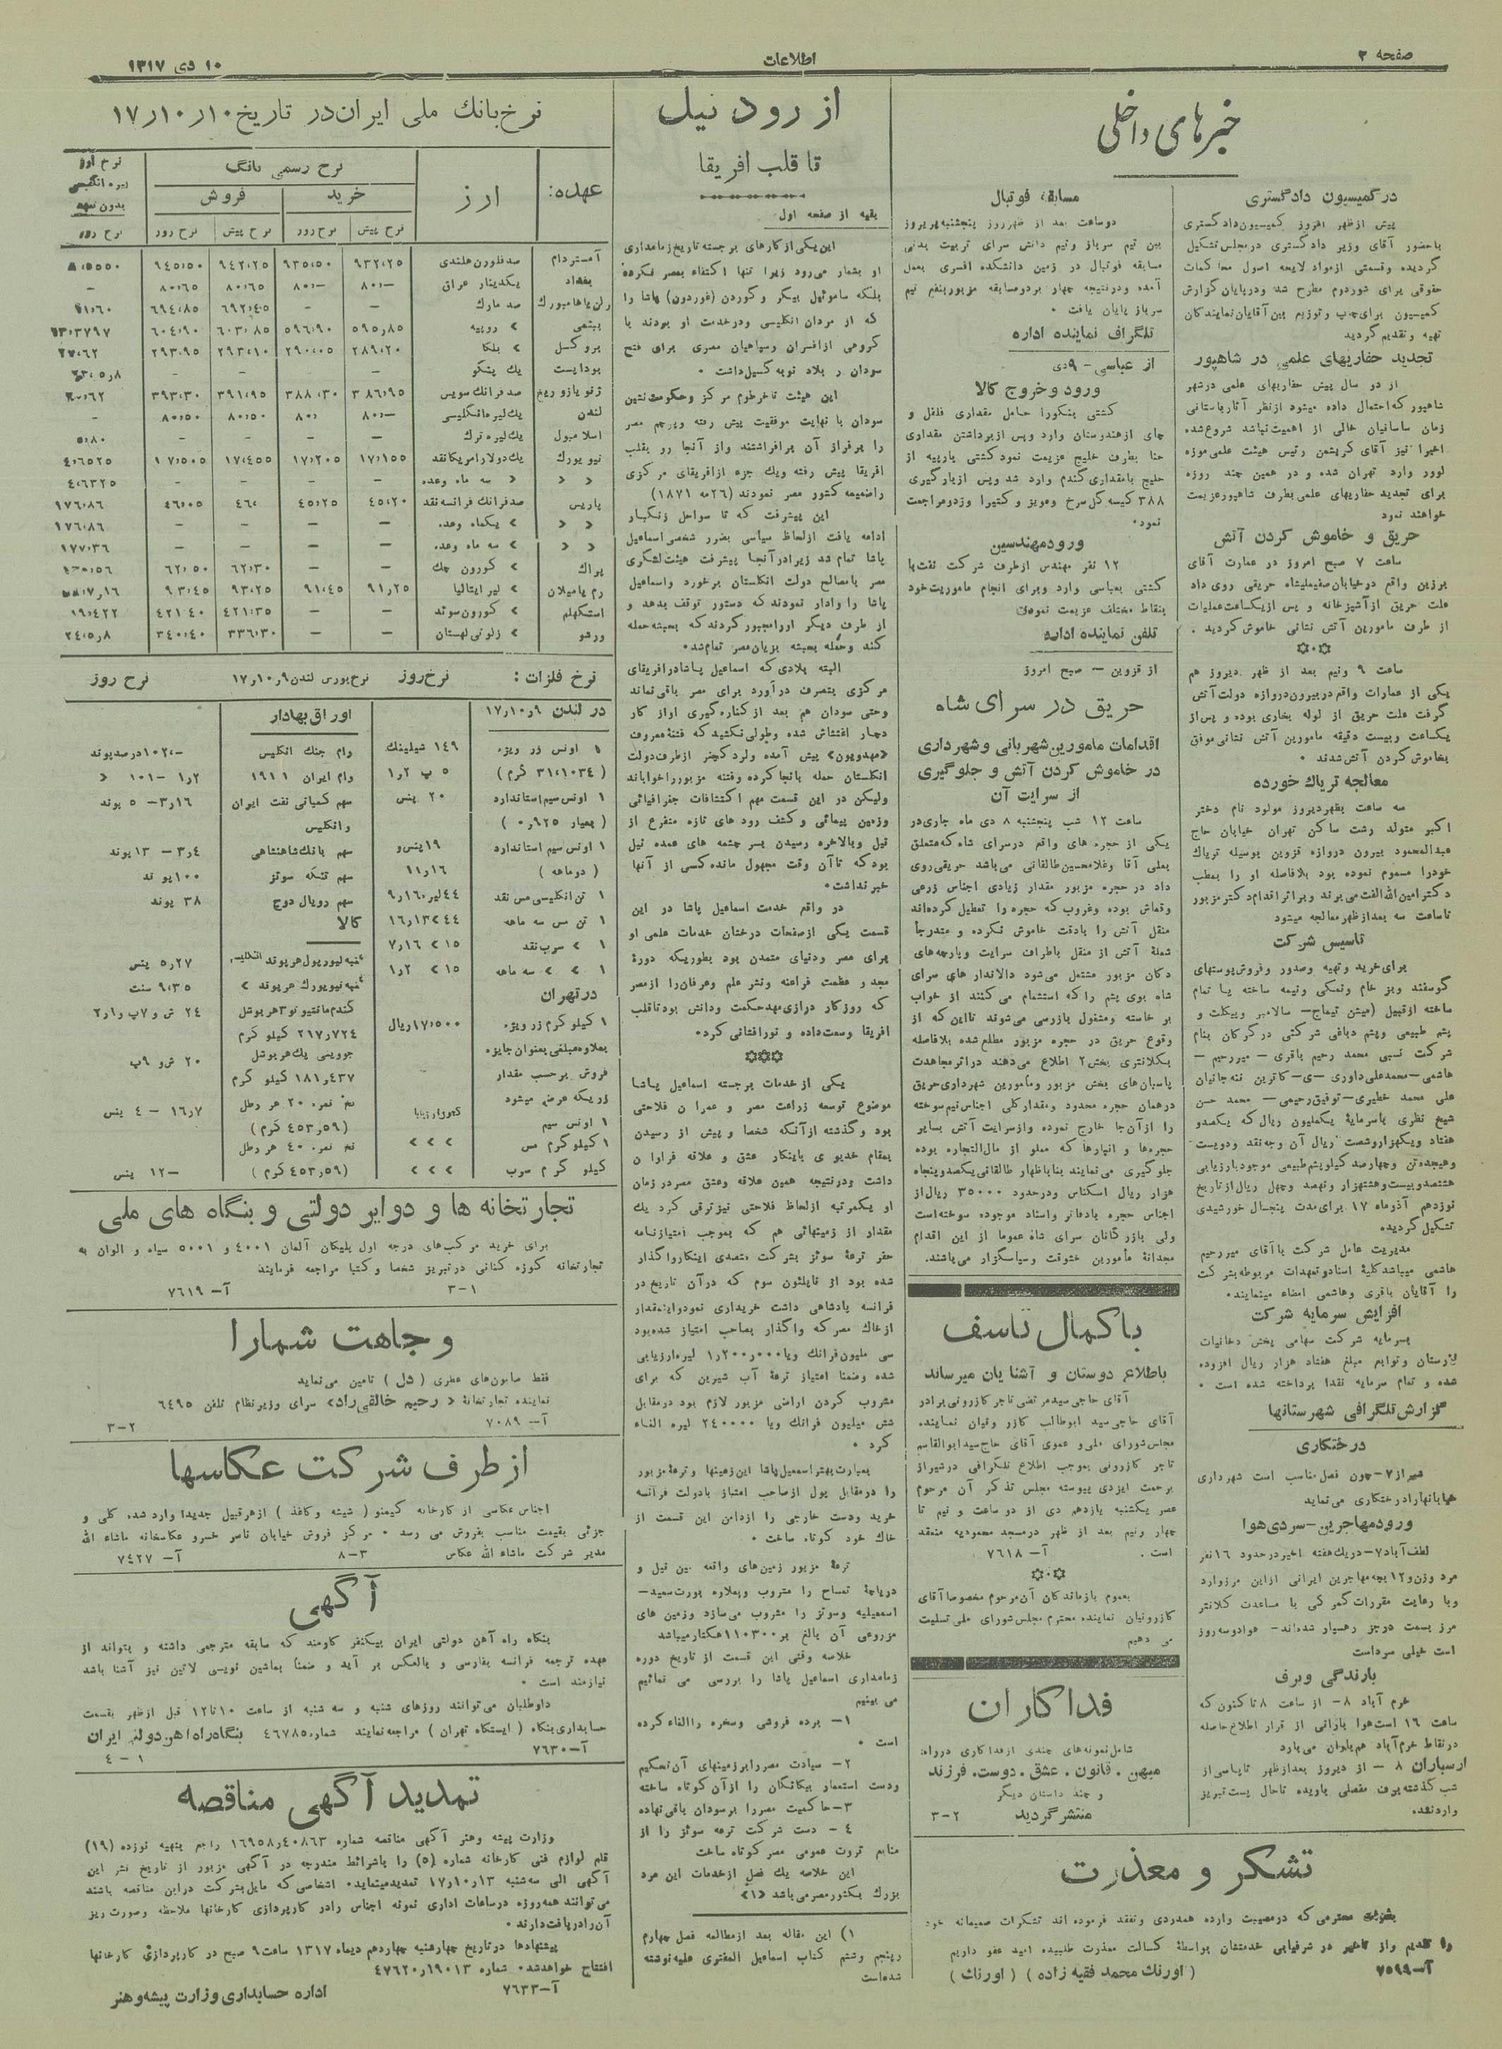 صفحه ۲
اطلاعات
۱۰ دی ۱۳۱۷
خبرهای داخلی
در کمیسیون دادگستری
پیش از ظهر امروز کمیسیون دادگستری
با حضور آقای وزیر دادگستری در مجلس تشکیل
گردیده و قسمتی از مواد لایحه اصول محاکمات
حقوقی برای شور دوم مطرح شد و در پایان گزارش
کمیسیون برای چاپ و توزیع بین آقایان نمایندگان
تهیه و تقدیم گردید
تجدید حفاریهای علمی در شاهپور
از دو سال پیش حفاریهای علمی در شهر
شاهپور که احتمال داده میشود از نظر آثار باستانی
زمان ساسانیان خالی از اهمیت نباشد شروع شده
اخیرا نیز آقای گریشمن رئیس هیئت علمی موزه
لوور وارد تهران شده و در همین چند روزه
برای تجدید حفاریهای علمی بطرف شاهپور عزیمت
خواهند نمود
حریق و خاموش کردن آتش
ساعت ۷ صبح امروز در عمارت آقای
برزین واقع در خیابان صفیعلیشاه حریقی روی داد
علت حریق از آشپزخانه و پس از یکساعت عملیات
از طرف مامورین آتش نشانی خاموش گردید.
ساعت ۹ ونیم بعد از ظهر دیروز هم
یکی از عمارات واقع در بیرون دروازه دولت آتش
گرفت علت حریق از لوله بخاری بوده و پس از
یکساعت و بیست دقیقه مامورین آتش نشانی موفق
بخاموش کردن آتش شدند.
معالجه تریاك خورده
سه ساعت بظهر دیروز مولود نام دختر
اکبر متولد رشت ساکن تهران خیابان حاج
عبدالمحمود بیرون دروازه قزوین بوسیله تریاك
خود را مسموم نموده بود بلافاصله او را بمطب
دکتر امین الله الفت می برند و بر اثر اقدام دکتر مزبور
تا ساعت سه بعد از ظهر معالجه میشود
تاسیس شرکت
برای خرید و تهیه وصدور وفروش پوستهای
گوسفند وبز خام ونمکی ونیمه ساخته یا تمام
ساخته از قبیل (میشن تیماج- سالامبر وپیکلت و
پشم طبیعی وپشم دباغی شرکتی در گرگان بنام
شرکت نسبی محمد رحیم باقری - میر رحیم -
هاشمی - محمد علی داوری - ی - کاترین ننه جانیان
علی محمد خطیری - توفیق رحیمی - محمد حسن
شیخ نظری با سرمایهٔ یکملیون ریال که یکصدو
هفتاد ویکهزار وشصت ریال آن وجه نقد ودویست
وهیجده تن وچهار صد کیلو پشم طبیعی موجود بارزیابی
هشتصد و بیست وهشتهزار ونهصد وچهل ریال از تاریخ
نوزدهم آذرماه ۱۷ برای مدت پنجسال خورشیدی
تشکیل گردیده.
مدیریت عامل شرکت با آقای میررحیم
هاشمی میباشد کلیهٔ اسناد و تعهدات مربوطه بشرکت
را آقایان باقری وهاشمی امضاء مینمایند.
افزایش سرمایه شرکت
بسرمایه شرکت سهامی پخش دخانیات
لارستان وتوابع مبلغ هفتاد هزار ریال افزوده
شده و تمام سرمایه نقدا پرداخته شده است.
گزارش تلگرافی شهرستانها
درختکاری
شیراز ۷- چون فصل مناسب است شهرداری
خیابانها را درختکاری می نماید
ورود مهاجرین - سردی هوا
لطف آباد ۷- در یك هفته اخیر در حدود ۱۶ نفر
مرد وزن و ۱۲ بچه مهاجرین ایرانی از این مرز وارد
وبا رعایت مقررات گمرکی با مساعدت کلانتر
مرز بسمت درجز رهسپار شده اند - هوا دو سه روز
است خیلی سرد است
بارندگی وبرف
خرم آباد ۸- از ساعت ۸ تا کنون که
ساعت ۱۶ است هوا بارانی از قرار اطلاع حاصله
در نقاط خرم آباد هم باران می بارد
ارسباران ۸ - از دیروز بعد از ظهر تا پاسی از
شب گذشته برف مفصلی باریده تا حال پست تبریز
وارد نشده.
مسابقه فوتبال
دو ساعت بعد از ظهر روز پنجشنبه پریروز
بین تیم سرباز وتیم دانش سرای تربیت بدنی
مسابقه فوتبال در زمین دانشکده افسری بعمل
آمده ودر نتیجه چهار بر دو مسابقه مزبور بنفع تیم
سرباز پایان یافت.
تلگراف نماینده اداره
از عباسی - ۹ دی
ورود وخروج کالا
کشتی بنکورا حامل مقداری فلفل و
چای از هندوستان وارد وپس از برداشتن مقداری
حنا بطرف خلیج عزیمت نمود کشتی باربیه از
خلیج با مقداری گندم وارد شد وپس از بارگیری
۳۸۸ کیسه گل سرخ ومویز و کتیرا وزد ومراجعت
نمود.
ورود مهندسین
۱۲ نفر مهندس از طرف شرکت نفت با
کشتی بعباسی وارد وبرای انجام ماموریت خود
بنقاط مختلف عزیمت نمودند
تلفن نماینده اداره
از قزوین - صبح امروز
حریق در سرای شاه
اقدامات مامورین شهربانی وشهرداری
در خاموش کردن آتش و جلوگیری
از سرایت آن
ساعت ۱۲ شب پنجشنبه ۸ دی ماه جاری در
یکی از حجره های واقع در سرای شاه که متعلق
بعلی آقا وغلامحسین طالقانی می باشد حریقی روی
داد در حجره مزبور مقدار زیادی اجناس زرعی
وقماش بوده وغروب که حجره را تعطیل کرده اند
منقل آتش را بادقت خاموش نکرده و متدرجاً
شعلهٔ آتش از منقل باطراف سرایت وپارچه های
دکان مزبور مشتعل می شود دالاندار های سرای
شاه بوی پشم را که استشمام می کنند از خواب
بر خاسته ومشغول بازرسی می شوند تا این که از
وقوع حریق در حجره مزبور مطلع شده بلافاصله
بکلانتری بخش ۲ اطلاع می دهند در اثر مجاهدت
پاسبان های بخش مزبور ومأمورین شهرداری حریق
در همان حجره محدود ومقدار کلی اجناس نیم سوخته
را از آن جا خارج نموده واز سرایت آتش بسایر
حجره ها و انبارها که مملو از مال التجاره بوده
جلوگیری می نمایند بنا باظهار طالقانی یکصد وپنجاه
هزار ریال اسکناس ودر حدود ۳۵۰۰۰ ریال از
اجناس حجره با دفاتر واسناد موجوده سوخته است
ولی بازرگانان سرای شاه عموما از این اقدام
مجدانهٔ مأمورین خشوقت وسپاسگزار می باشند.
با کمال تاسف
باطلاع دوستان و آشنایان میرساند
آقای حاجی سید مرتضی تاجر کازرونی برادر
آقای حاجی سید ابوطالب کازرونیان نماینده
مجلس شورای ملی و عموی آقای حاج سید ابوالقاسم
تاجر کازرونی بموجب اطلاع تلگرافی در شیراز
برحمت ایزدی پیوسته مجلس تذکر آن مرحوم
عصر یکشنبه یازدهم دی از دو ساعت و نیم تا
چهار ونیم بعد از ظهر در مسجد محمودیه منعقد
است. آ- ۷۶۱۸
بعموم بازماندگان آن مرحوم مخصوصا آقای
کازرونیان نماینده محترم مجلس شورای ملی تسلیت
می دهیم
فداکاران
شامل نمونه های چندی از فداکاری در راه
میهن. قانون. عشق. دوست. فرزند
و چند داستان دیگر
منتشر گردید ۲-۳
تشکر و معذرت
محترمی که در مصیبت وارده همدردی وتفقد فرموده اند تشکرات صمیمانه خود
را تقدیم واز تاخیر در شرفیابی خدمتشان بواسطهٔ کسالت معذرت طلبیده امید عفو داریم
آ- ۷۵۹۹ (اورنك محمد فقیه زاده) (اورنك)
از رود نیل
تا قلب افریقا
بقیه از صفحه اول
این یکی از کارهای برجسته تاریخ زمامداری
او بشمار می رود زیرا تنها اکتفاء بمصر نکرده
بلکه ساموئیل بیکر و گوردن (غوردون) پاشا را
که از مردان انگلیسی ودر خدمت او بودند با
گروهی از افسران وسپاهیان مصری برای فتح
سودان و بلاد نوبه گسیل داشت.
این هیئت تا خرطوم مرکز و حکومت نشین
سودان با نهایت موفقیت پیش رفته وپرچم مصر
را بر فراز آن برافراشتند واز آنجا رو بقلب
افریقا پیش رفته ویك جزء از افریقای مرکزی
را ضمیمه کشور مصر نمودند (۲۶ مه ۱۸۷۱)
این پیشرفت که تا سواحل زنگبار
ادامه یافت از لحاظ سیاسی بضرر شخصی اسماعیل
پاشا تمام شد زیرا در آنجا پیشرفت هیئت لشکری
مصر با مصالح دولت انگلستان برخورد واسماعیل
پاشا را وادار نمودند که دستور توقف بدهد و
از طرف دیگر او را مجبور کردند که بحبشه حمله
کند وحمله بحبشه بزیان مصر تمام شد.
البته بلادی که اسماعیل پاشا در افریقای
مرکزی بتصرف در آورد برای مصر باقی نماند
وحتی سودان هم بعد از کناره گیری او از کار
دچار اغتشاش شده وطولی نکشید که فتنهٔ معروف
«مهدویون» پیش آمده ولرد کچنر از طرف دولت
انگلستان حمله بانجا کرده وفتنه مزبور را خواباند
ولیکن در این قسمت مهم اکتشافات جغرافیائی
وزمین پیمائی و کشف رود های تازه متفرع از
نیل وبالاخره رسیدن بسر چشمه های عمده نیل
بود که تا آن وقت مجهول مانده کسی از آنها
خبر نداشت.
در واقع خدمت اسماعیل پاشا در این
قسمت یکی از صفحات درخشان خدمات علمی او
برای مصر ودنیای متمدن بود بطوریکه دورهٔ
مجد و عظمت فراعنه ونشر علم وعرفان را از مصر
که روزگار درازی مهد حکمت ودانش بود تا قلب
افریقا وسعت داده و نور افشانی کرد.
یکی از خدمات برجسته اسماعیل پاشا
موضوع توسعه زراعت مصر و عمران فلاحتی
بود وگذشته از آنکه شخصا و پیش از رسیدن
بمقام خدیوی باینکار عشق و علاقه فراوان
داشت ودر نتیجه همین علاقه وعشق مصر در زمان
او یکمرتبه از لحاظ فلاحتی نیز ترقی کرد یك
مقدار از زمینهائی هم که بموجب امتیازنامه
حفر ترعهٔ سوئز بشرکت متصدی اینکار واگذار
شده بود از ناپلئون سوم که در آن تاریخ در
فرانسه پادشاهی داشت خریداری نمود واینمقدار
از خاك مصر که واگذار بصاحب امتیاز شده بود
سی ملیون فرانك ویا ۱٫۲۰۰٫۰۰۰ لیره ارزیابی
شده وضمناً امتیاز ترعهٔ آب شیرین که برای
مشروب کردن اراضی مزبور لازم بود در مقابل
شش میلیون فرانك ویا ۲۴۰۰۰۰ لیره الغاء
کرد.
بعبارت بهتر اسمعیل پاشا این زمینها وترعهٔ مزبور
را در مقابل پول از صاحب امتیاز با دولت فرانسه
خرید ودست خارجی را از دامن این قسمت از
خاك خود کوتاه ساخت.
ترعهٔ مزبور زمین های واقعه بین نیل و
دریاچهٔ تمساح را مشروب وبعلاوه پورت سعید-
اسمعیلیه وسوئز را مشروب می سازد وزمین های
مزروعی آن بالغ بر ۱۱۰۳۰۰ هکتار میباشد
خلاصه وقتی این قسمت از تاریخ دوره
زمامداری اسماعیل پاشا را بررسی می نمائیم
می بینیم
۱- برده فروشی وسخره را الغاء کرده
است.
۲- سیادت مصر را بر زمینهای آن تحکیم
ودست استعمار بیگانگان را از آن کوتاه ساخته
۳- حاکمیت مصر را بر سودان باقی نهاده
۴ - دست شرکت ترعه سوئز را از
منابع ثروت عمومی مصر کوتاه ساخت
این خلاصه یك فصل از خدمات این مرد
بزرك بکشور مصر می باشد «۱»
۱) این مقاله بعد از مطالعه فصل چهارم
وپنجم وششم کتاب اسماعیل المفتری علیه نوشته
شده است
نرخ بانك ملی ایران در تاریخ ۱۰ر۱۰ر۱۷
عهده: ارز نرخ رسمی بانگ
خرید فروش
نرخ پیش نرخ روز نرخ پیش نرخ روز نرخ روز
آمستردام صد فلورن هلندی ۹۳۲٫۲۵ ۹۳۵٫۵۰ ۹۴۲٫۲۵ ۹۴۵٫۵۰
بغداد یکدینار عراق ۸۰٫- ۸۰٫- ۸۰٫۶۵ ۸۰٫۶۵ -
برلن یا هامبورك صد مارك - - ۶۹۲٫۴۵ ۶۹۴٫۸۵
بمبئی » روپیه ۵۹۵٫۸۵ ۵۹۶٫۹۰ ۶۰۳٫۸۵ ۶۰۴٫۹۰
بروکسل » بلکا ۲۸۹٫۲۰ ۲۹۰٫۰۵ ۲۹۳٫۱۰ ۲۹۳٫۹۵
بوداپست یك پنگو - - - -
ژنو یا زوریخ صد فرانك سویس ۳۸۶٫۹۵ ۳۸۸٫۳۰ ۳۹۱٫۹۵ ۳۹۳٫۳۰
لندن یك لیره انگلیسی ۸۰٫- ۸۰٫ ۸۰٫۵۰ ۸۰٫۵۰ -
اسلامبول یك لیره ترك - - - - ۵٫۸۰
نیویورك یك دولار امریکا نقد ۱۷٫۱۵۵ ۱۷٫۲۰۵ ۱۷٫۴۵۵ ۱۷٫۵۰۵ ۴٫۶۵۲۵
» » » سه ماه وعده - - - - ۴٫۶۳۲۵
پاریس صد فرانك فرانسه نقد ۴۵٫۲۰ ۴۵٫۲۵ ۴۶٫ ۴۶٫۰۵
» » » یکماه وعده - - - -
» » » سه ماه وعده - - - - ۱۷۷٫۳۶
پراك » کورون چك - - ۶۲٫۳۰ ۶۲٫۵۰
رم یا میلان » لیر ایتالیا ۹۱٫۲۵ ۹۱٫۴۵ ۹۳٫۲۵ ۹۳٫۴۵
استکهلم » کورون سوئد - - ۴۲۱٫۳۵ ۴۲۱٫۴۰ ۱۹٫۴۲۲
ورشو » زلوتی لهستان - - ۳۳۶٫۳۰ ۳۴۰٫۴۰ ۲۴٫۵ر۸
نرخ فلزات: نرخ روز نرخ بورس لندن ۹ر۱۰ر۱۷ نرخ روز
در لندن ۹ر۱۰ر۱۷
۱ اونس زر ویژه ۱۴۹ شیلینك
(۳۱٫۱۰۳۴ گرم) ۵ پ ۱ر۲
۱ اونس سیم استاندارد ۲۰ پنس
(بعیار ۰٫۹۲۵)
۱ اونس سیم استاندارد ۱۹ پنس و
(دو ماهه) ۱۱ر۱۶
۱ تن انگلیسی مس نقد
۱ تن مس سه ماهه
۱ » سرب نقد ۱۵ » ۷ر۱۶
۱ » » سه ماهه ۱۵ » ۱ر۲
در تهران
۱ کیلو گرم زر ویژه ۱۷٫۵۰۰ ریال
بعلاوه مبلغی بعنوان جایزه
فروش برحسب مقدار
زریکه عرضه میشود
۱ اونس سیم
۱ کیلو گرم مس » » »
کیلو گرم سرب » » »
اوراق بهادار
وام جنك انگلیس ۱۰۲٫- درصد پوند
وام ایران ۱۹۱۱ ۱ر۲ -۱۰۱ »
سهم کمپانی نفت ایران ۳ر۱۶- ۵ پوند
وانگلیس
سهم بانك شاهنشاهی ۳ر۴ - ۱۳ پوند
سهم تنگه سوئز ۱۰۰ پوند
سهم رویال دوچ ۳۸ پوند
کالا
پنبه لیورپول هر پوند انگلیسی ۵ر۲۷ پنس
پنبه نیویورك هر پوند » ۹٫۳۵ سنت
گندم مانتیو نو ۳ هر بوشل ۲۴ ش و ۷ پ و ۱ر۲
۲۱۷ر۷۲۴ کیلو گرم
جو وینی پك هر بوشل ۲۰ ش و ۹ پ
۱۸۱ر۴۳۷ کیلو گرم
نخ نمره ۲۰ هر رطل ۷ر۱۶ - ۴ پنس
(۴۵۳ر۵۹ گرم)
نخ نمره ۴۰ هر رطل
(۴۵۳ر۵۹ گرم) -۱۲ پنس
تجارتخانه ها و دوایر دولتی و بنگاه های ملی
برای خرید مرکب های درجه اول پلیکان آلمان ۴۰۰۱ و ۵۰۰۱ سیاه و الوان به
تجارتخانه کوزه کنانی در تبریز شخصا و کتبا مراجعه فرمایند
۱-۳ آ- ۷۶۱۹
وجاهت شمارا
فقط صابون های عطری (دل) تامین می نماید
نماینده تجارتخانهٔ «رحیم خالقی راد» سرای وزیر نظام تلفن ۶۴۹۵
آ- ۷۰۸۹ ۲-۳
از طرف شرکت عکاسها
اجناس عکاسی از کارخانه کیمنو (شیشه و کاغذ) از هر قبیل جدیدا وارد شده کلی و
جزئی بقیمت مناسب بفروش می رسد. مرکز فروش خیابان ناصر خسرو عکاسخانه ماشاء الله
مدیر شرکت ماشاء الله عکاس ۳-۸ آ- ۷۴۲۷
آگهی
بنگاه راه آهن دولتی ایران بیکنفر کارمند که سابقه مترجمی داشته و بتواند از
عهده ترجمه فرانسه بفارسی و بالعکس بر آید و ضمناً بماشین نویسی لاتین نیز آشنا باشد
نیازمند است.
داوطلبان می توانند روزهای شنبه و سه شنبه از ساعت ۱۰ تا ۱۲ قبل از ظهر بقسمت
حسابداری بنگاه (ایستگاه تهران) مراجعه نمایند شماره ۴۶۷۸۵ بنگاه راه آهن دولتی ایران
آ- ۷۶۳۰ ۱-۴
تمدید آگهی مناقصه
وزارت پیشه وهنر آگهی مناقصه شماره ۴۰۸۶۳ر۱۶۹۵۸ راجع بتهیه نوزده (۱۹)
قلم لوازم فنی کارخانه شماره (۵) را باشرائط مندرجه در آگهی مزبور از تاریخ نشر این
آگهی الی سه شنبه ۱۳ر۱۰ر۱۷ تمدید مینماید. اشخاصی که مایل بشرکت در این مناقصه باشند
می توانند همه روزه در ساعات اداری نمونه اجناس را در کارپردازی کارخانها ملاحظه وصورت ریز
آن را دریافت دارند.
پیشنهادها در تاریخ چهارشنبه چهاردهم دیماه ۱۳۱۷ ساعت ۹ صبح در کارپردازی کارخانها
افتتاح خواهد شد. شماره ۱۹۰۱۳ر۴۷۶۲۰
آ- ۷۶۳۳ اداره حسابداری وزارت پیشه وهنر